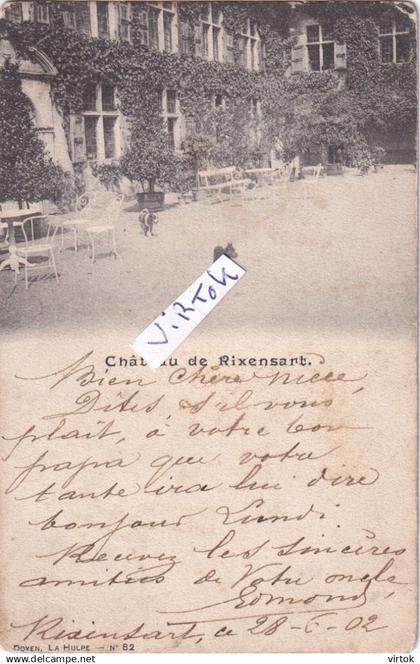 ViRtoK
Château de Rixensart.
Bien chère Nièce
Dites, s'il vous
plaît, à votre bon
papa que votre
tante ira lui dire
bonjour Lundi.
Recevez les sincères
amitiés de Votre oncle
Edmond
Rixensart, ce 28-6-02
DOYEN, LA HULPE – N° 82
© virtok